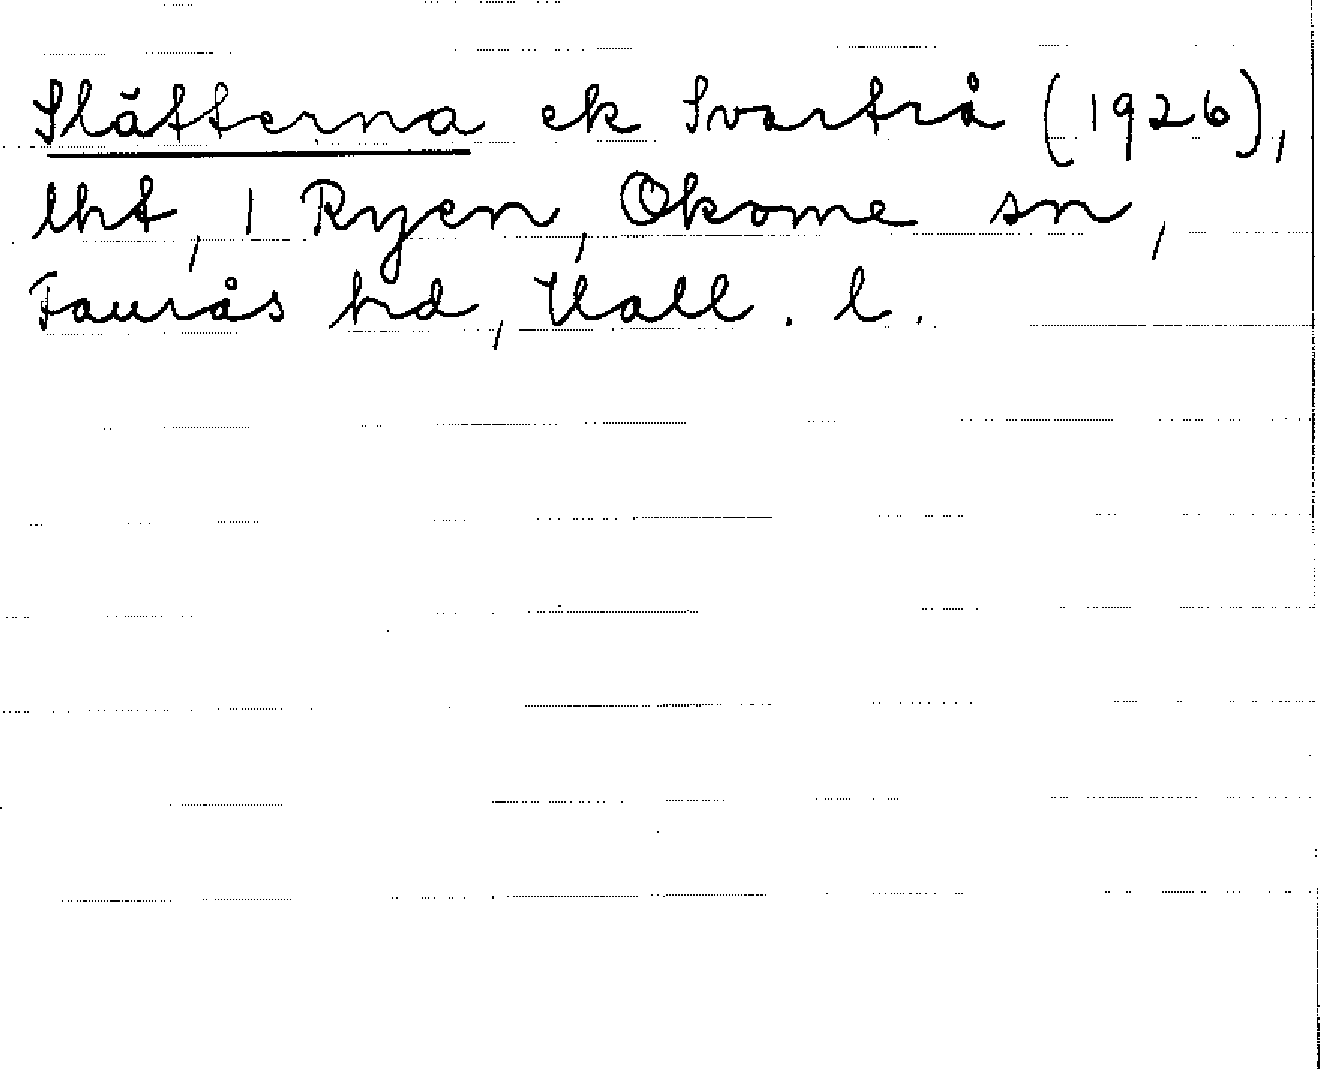 Slätterna ek Svartrå (1926),
lht, 1 Ryen, Okome sn,
Faurås hd, Hall. l.